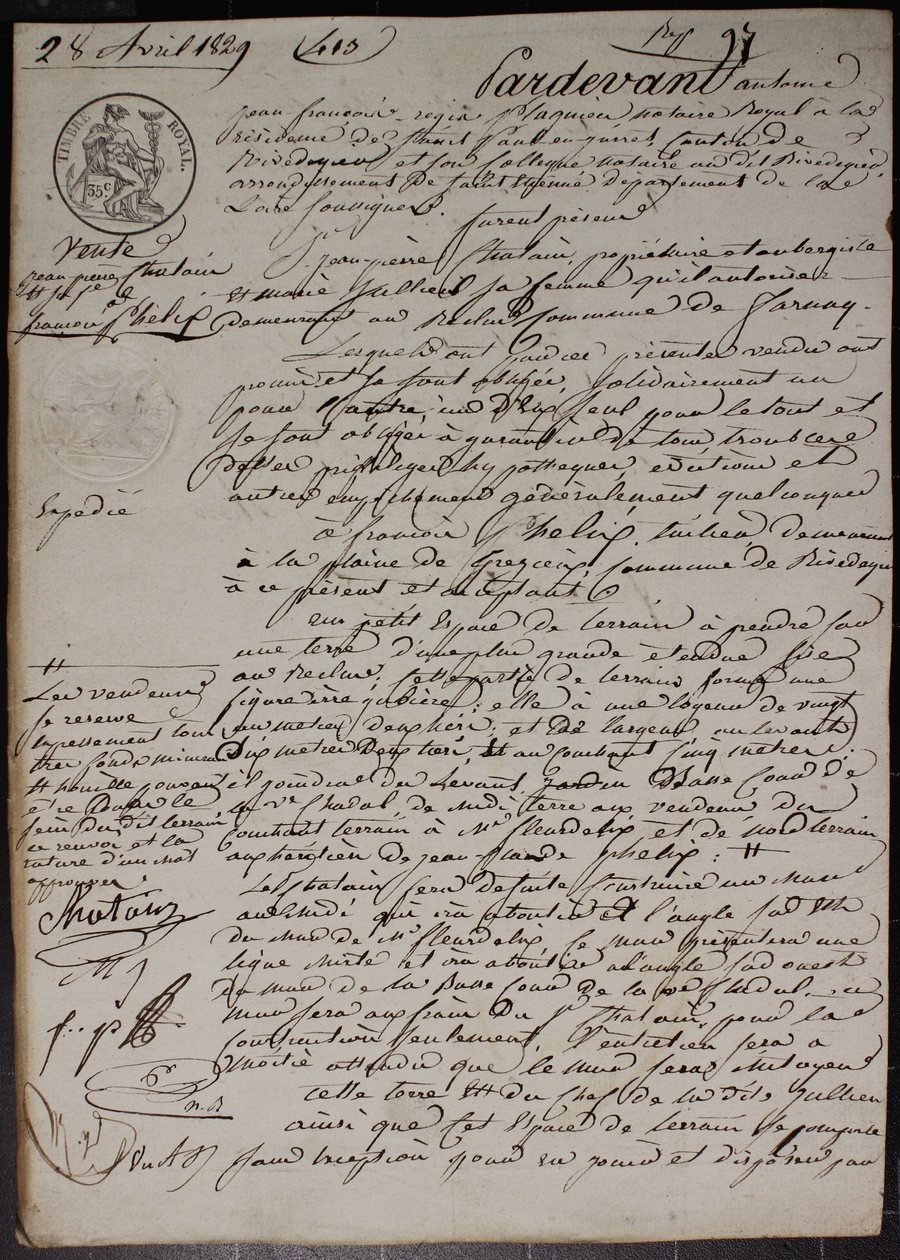 28 Avril 1829 413 97
Pardevant antoine
TIMBRE ROYAL.
35 c
jean françois regis plagnieu notaire Royal à la
résidence de Saint Paul en jarret, Canton de
Rivedegier et son Collegue notaire au dit Rivedegier,
arrondissement de Saint Etienne, département de la
Loire soussignés.
furent présens
Vente
jean pierre Chatain
et sa fe
à
françois Phelip
Sr jean-pierre Chatain, propriétaire et aubergiste
et marie Jullien sa femme qu'il autorise
demeurant au Reclus Commune de Farnay.
Lesquels ont par ces présentes vendu ont
promis et se sont obligés, solidairement un
pour l'autre, un d'eux seul pour le tout et
se sont obligés à garantir de tous troubles
dettes privileges hypotheques, évictions et
autres empechemens généralement quelconques
Expedié
à françois Phelip, demeurant
à la plaine de Grezieux, Commune de Rivedegier
à ce présent et acceptant
un petit Espace de terrain à prendre sur
une terre d'une plus grande étendue sise
au Reclus, Cette partie de terrain forme une
figure irrégulière; elle a une longueur de vingt
un metres deux tiers, et de largeur au levant
dix metres deux tiers, et au Couchant Cinq metres.
il joindra du Levant, Basse Cour de
la ve Chadal de midi terre aux vendeurs du
Couchant terrain à Mr fleurdelix et de nord terrain
aux héritiers de jean-claude phelip: #
#
Les vendeurs
se reserve
Expressement tout
tres fonds mineraux
et houille pouvant
être dans le
sein du dit terrain
ce renvoi et la
rature d'un mot
approuvés
Chatain
Le Sr Chatain sera de faire Construire un mur
au midi qui ira aboutir à l'angle sud Est
du mur de Mr fleurdelix, Ce mur présentera une
ligne droite et ira aboutir à l'angle sud ouest
du mur de la Basse Cour de la ve Chadal, ce
mur sera aux frais du Sr Chatain, pour la
construction seulement, l'entretien sera à
moitié attendu que le mur sera mitoyen
f.. p
cette terre est du Chef de la dite Jullien
ainsi que Cet Espace de terrain se comporte
sans exception pour en jouir et disposer par